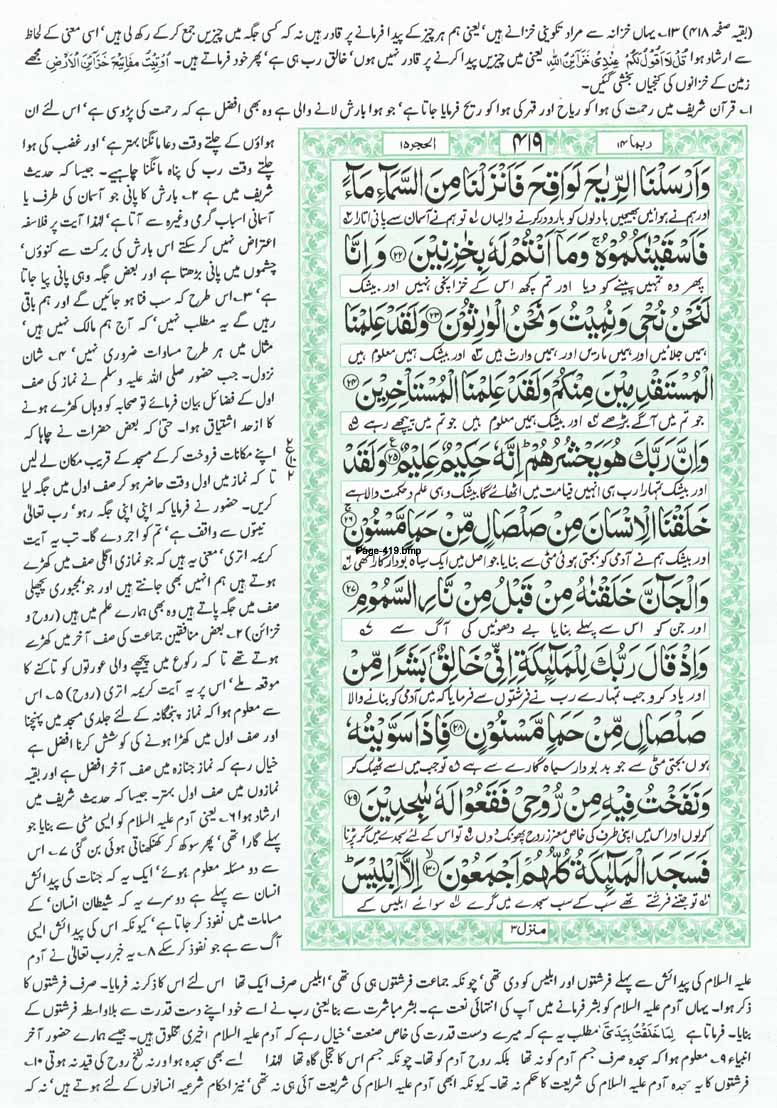 (بقیہ صفحہ ۴۱۸) ۱۳۔ یہاں خزانہ سے مراد تکوینی خزانے ہیں' یعنی ہم ہر چیز کے پیدا فرمانے پر قادر ہیں نہ کہ کسی جگہ میں چیزیں جمع کر کے رکھ لی ہیں' اسی معنی کے لحاظ
سے ارشاد ہوا قُلْ لَّا اَقُوْلُ لَكُمْ عِنْدِیْ خَزَآئِنُ اللّٰهِ یعنی میں چیزیں پیدا کرنے پر قادر نہیں ہوں' خالق رب ہی ہے' پھر خود فرماتے ہیں۔ اُوْتِیْتُ مَفَاتِیْحَ خَزَآئِنِ الْاَرْضِ مجھے
زمین کے خزانوں کی کنجیاں بخشی گئیں۔
۱۔ قرآن شریف میں رحمت کی ہوا کو ریاح اور قہر کی ہوا کو ریح فرمایا جاتا ہے' جو ہوا بارش لانے والی ہے وہ بھی افضل ہے کہ رحمت کی پڑوسی ہے' اس لئے ان
ہواؤں کے چلتے وقت دعا مانگنا بہتر ہے' اور غضب کی ہوا
چلتے وقت رب کی پناہ مانگنا چاہیے۔ جیسا کہ حدیث
شریف میں ہے ۲۔ بارش کا پانی جو آسمان کی طرف یا
آسمانی اسباب گرمی وغیرہ سے آتا ہے' لہٰذا آیت پر فلاسفہ
اعتراض نہیں کر سکتے اس بارش کی برکت سے کنوؤں'
چشموں میں پانی بڑھتا ہے اور بعض جگہ وہی پانی پیا جاتا
ہے' ۳۔ اس طرح کہ سب فنا ہو جائیں گے اور ہم باقی
رہیں گے یہ مطلب نہیں' کہ آج ہم مالک نہیں ہیں'
مثال میں ہر طرح مساوات ضروری نہیں' ۴۔ شان
نزول۔ جب حضور صلی اللہ علیہ وسلم نے نماز کی صف
اول کے فضائل بیان فرمائے تو صحابہ کو وہاں کھڑے ہونے
کا ازحد اشتیاق ہوا۔ حتیٰ کہ بعض حضرات نے چاہا کہ
اپنے مکانات فروخت کر کے مسجد کے قریب مکان لے لیں
تا کہ نماز میں اول وقت حاضر ہو کر صف اول میں جگہ لیا
کریں۔ حضور نے فرمایا کہ اپنی اپنی جگہ رہو' رب تعالیٰ
نیتوں سے واقف ہے' تم کو اجر دے گا۔ تب یہ آیت
کریمہ اتری' معنی یہ ہیں کہ جو نمازی اگلی صف میں کھڑے
ہوتے ہیں ہم انہیں بھی جانتے ہیں اور جو بمجبوری پچھلی
صف میں جگہ پاتے ہیں وہ بھی ہمارے علم میں ہیں (روح و
خزائن) ۲۔ بعض منافقین جماعت کی صف آخر میں کھڑے
ہوتے تھے تا کہ رکوع میں پیچھے والی عورتوں کو تاکنے کا
موقعہ ملے' اس پر یہ آیت کریمہ اتری (روح) ۵۔ اس
سے معلوم ہوا کہ نماز پنجگانہ کے لئے جلدی مسجد میں پہنچنا
اور صف اول میں کھڑا ہونے کی کوشش کرنا افضل ہے
خیال رہے کہ نماز جنازہ میں صف آخر افضل ہے اور بقیہ
نمازوں میں صف اول بہتر۔ جیسا کہ حدیث شریف میں
ارشاد ہوا ۶۔ یعنی آدم علیہ السلام کو ایسی مٹی سے بنایا جو
پہلے گارا تھی' پھر سوکھ کر کھنکھناتی ہوئی بن گئی ۷۔ اس
سے دو مسئلہ معلوم ہوئے' ایک یہ کہ جنات کی پیدائش
انسان سے پہلے ہے دوسرے یہ کہ شیطان انسان' کے
مسامات میں نفوذ کر جاتا ہے' کیونکہ اس کی پیدائش ایسی
آگ سے ہے جو نفوذ کر سکے ۸۔ یہ خبر رب تعالیٰ نے آدم
ربما ۱۴
۴۱۹
الحجر ۱۵
وَاَرْسَلْنَا الرِّیٰحَ لَوَاقِحَ فَاَنْزَلْنَا مِنَ السَّمَآءِ مَآءً
اور ہم نے ہوائیں بھیجیں بادلوں کو بارور کرنے والیاں ۱ تو ہم نے آسمان سے پانی اتارا ۲
فَاَسْقَیْنٰكُمُوْهُ ۚ وَمَاۤ اَنْتُمْ لَهٗ بِخٰزِنِیْنَ ﴿۲۲﴾ وَاِنَّا
پھر وہ تمہیں پینے کو دیا اور تم کچھ اس کے خزانچی نہیں اور بیشک
لَنَحْنُ نُحْیٖ وَنُمِیْتُ وَنَحْنُ الْوٰرِثُوْنَ ﴿۲۳﴾ وَلَقَدْ عَلِمْنَا
ہمیں جلائیں اور ہمیں ماریں اور ہمیں وارث ہیں ۳ اور بیشک ہمیں معلوم ہیں
الْمُسْتَقْدِمِیْنَ مِنْكُمْ وَلَقَدْ عَلِمْنَا الْمُسْتَاْخِرِیْنَ ﴿۲۴﴾
جو تم میں آگے بڑھے ۴ اور بیشک ہمیں معلوم ہیں جو تم میں پیچھے رہے ۵
وَاِنَّ رَبَّكَ هُوَ یَحْشُرُهُمْ ؕ اِنَّهٗ حَكِیْمٌ عَلِیْمٌ ﴿۲۵﴾ وَلَقَدْ
اور بیشک تمہارا رب ہی انہیں قیامت میں اٹھائے گا بیشک وہی علم و حکمت والا ہے
خَلَقْنَا الْاِنْسَانَ مِنْ صَلْصَالٍ مِّنْ حَمَاٍ مَّسْنُوْنٍ ﴿۲۶﴾
Page-419.bmp
اور بیشک ہم نے آدمی کو بجتی ہوئی مٹی سے بنایا جو اصل میں ایک سیاہ بودار گارا تھی ۶
وَالْجَآنَّ خَلَقْنٰهُ مِنْ قَبْلُ مِنْ نَّارِ السَّمُوْمِ ﴿۲۷﴾
اور جن کو اس سے پہلے بنایا بے دھوئیں کی آگ سے ۷
وَاِذْ قَالَ رَبُّكَ لِلْمَلٰٓئِكَةِ اِنِّیْ خَالِقٌۢ بَشَرًا مِّنْ
اور یاد کرو جب تمہارے رب نے فرشتوں سے فرمایا کہ میں آدمی کو بنانے والا
صَلْصَالٍ مِّنْ حَمَاٍ مَّسْنُوْنٍ ﴿۲۸﴾ فَاِذَا سَوَّیْتُهٗ
ہوں بجتی مٹی سے جو بدبودار سیاہ گارے سے ہے ۸ تو جب میں اسے ٹھیک کر
وَنَفَخْتُ فِیْهِ مِنْ رُّوْحِیْ فَقَعُوْا لَهٗ سٰجِدِیْنَ ﴿۲۹﴾
کرلوں اور اس میں اپنی طرف کی خاص معزز روح پھونک دوں ۹ تو اس کے لئے سجدے میں گر پڑنا
فَسَجَدَ الْمَلٰٓئِكَةُ كُلُّهُمْ اَجْمَعُوْنَ ﴿۳۰﴾ اِلَّاۤ اِبْلِیْسَ ؕ
تو جتنے فرشتے تھے سب کے سب سجدے میں گرے سوائے ابلیس کے
منزل ۳
علیہ السلام کی پیدائش سے پہلے فرشتوں اور ابلیس کو دی تھی' چونکہ جماعت فرشتوں ہی کی تھی' ابلیس صرف ایک تھا اس لئے اس کا ذکر نہ فرمایا۔ صرف فرشتوں کا
ذکر ہوا۔ یہاں آدم علیہ السلام کو بشر فرمانے میں آپ کی انتہائی نعت ہے۔ بشر مباشرت سے بنا یعنی رب نے اسے خود اپنے دست قدرت سے بلاواسطہ فرشتوں کے
بنایا۔ فرماتا ہے لِمَا خَلَقْتُ بِیَدَیَّ مطلب یہ ہے کہ میرے دست قدرت کی خاص صنعت' خیال رہے کہ آدم علیہ السلام اخیری مخلوق ہیں۔ جیسے ہمارے حضور آخر
انبیاء ۹۔ معلوم ہوا کہ سجدہ صرف جسم آدم کو نہ تھا بلکہ روح آدم کو تھا۔ چونکہ جسم اس کا تجلی گاہ تھا لہٰذا اسے بھی سجدہ ہوا ورنہ نفخ روح کی قید نہ ہوتی ۱۰۔
فرشتوں کا یہ سجدہ آدم علیہ السلام کی شریعت کا حکم نہ تھا۔ کیونکہ ابھی آدم علیہ السلام کی شریعت آئی ہی نہ تھی' نیز احکام شرعیہ انسانوں کے لئے ہوتے ہیں' نہ کہ